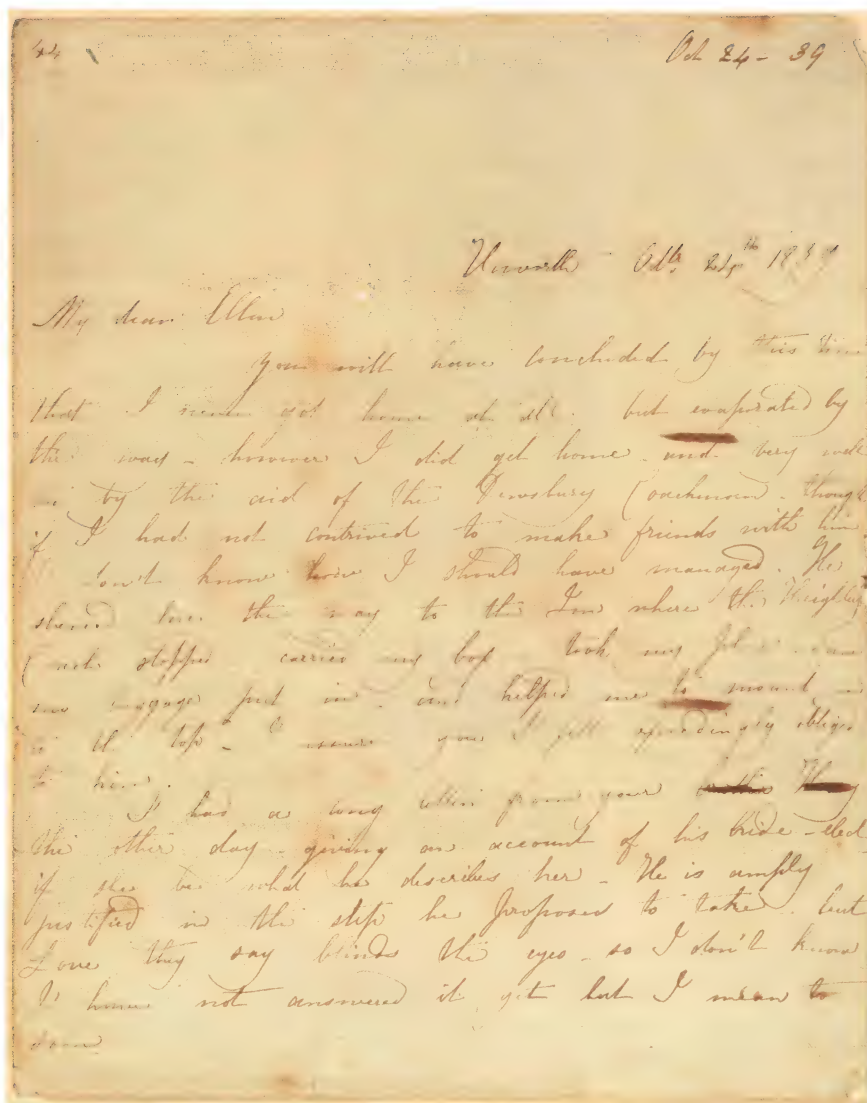 44
Oct 24 - 39
Haworth Octbr. 24th 1839
My dear Ellen
you will have concluded by this time
that I never got home at all but evaporated by
the way - however I did get home and very well
by the aid of the Dewsbury Coachman - though
if I had not contrived to make friends with him
don't know how I should have managed. He
showed me the way to the Inn where the Keighley
Coach stopped carried my box took my place saw
my luggage put in and helped me to mount
on the top - I assure you I felt exceedingly obliged
to him.
I had a long letter from your brother Henry
the other day - giving an account of his bride-elect
if she be what he describes her - He is amply
justified in the step he proposes to take. but
Love they say blinds the eyes - so I don't know
I have not answered it yet but I mean to
soon